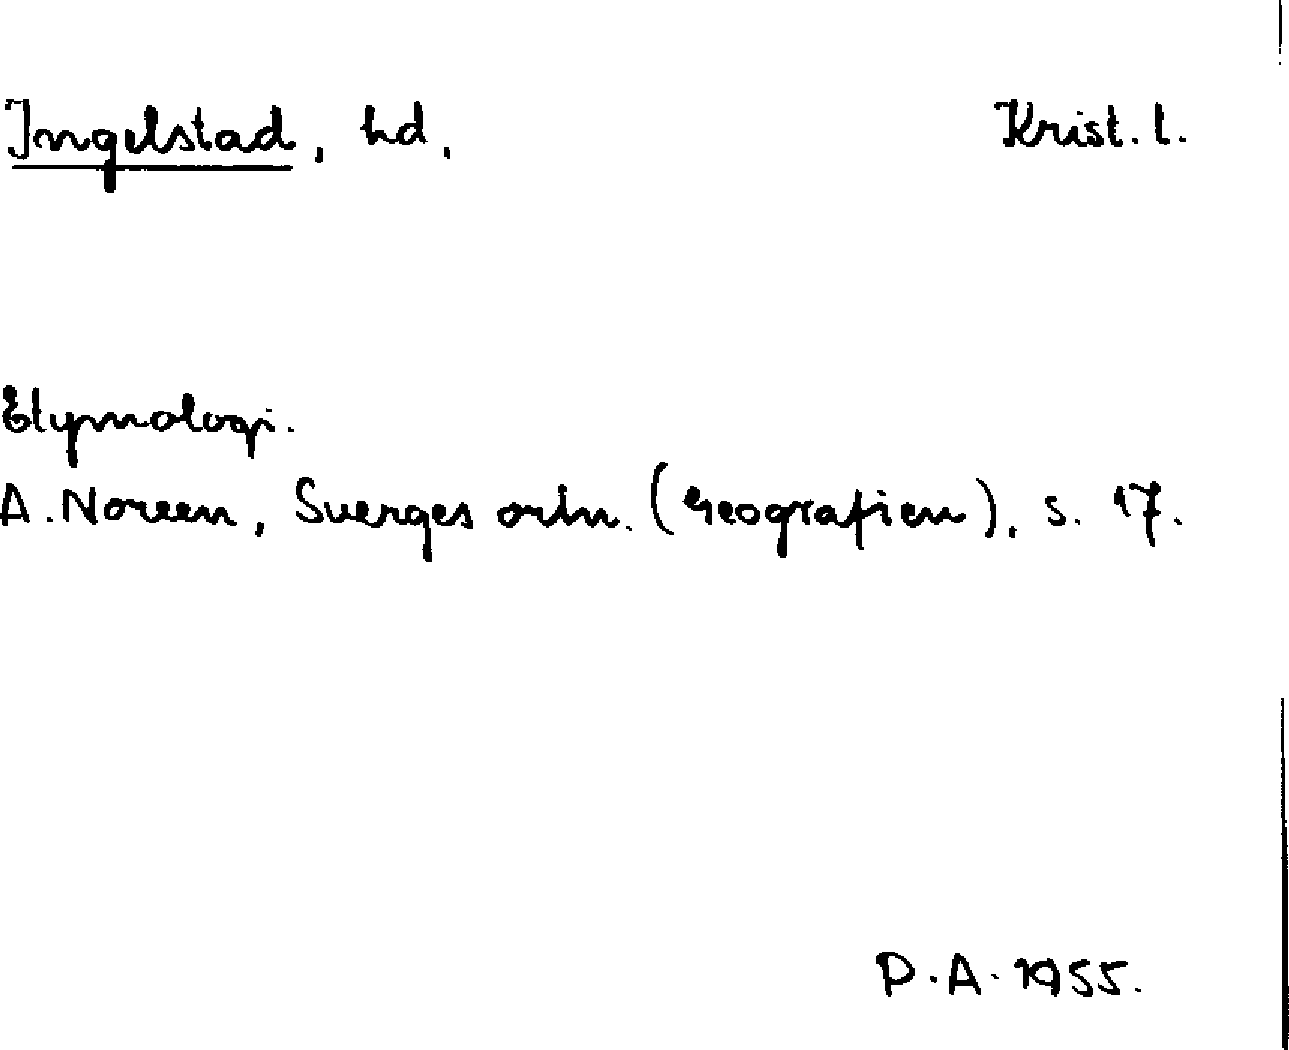 Ingelstad, hd, Krist. l.
Etymologi.
A. Noreen, Sverges ortn. (Geografien), s. 17.
P. A. 1955.